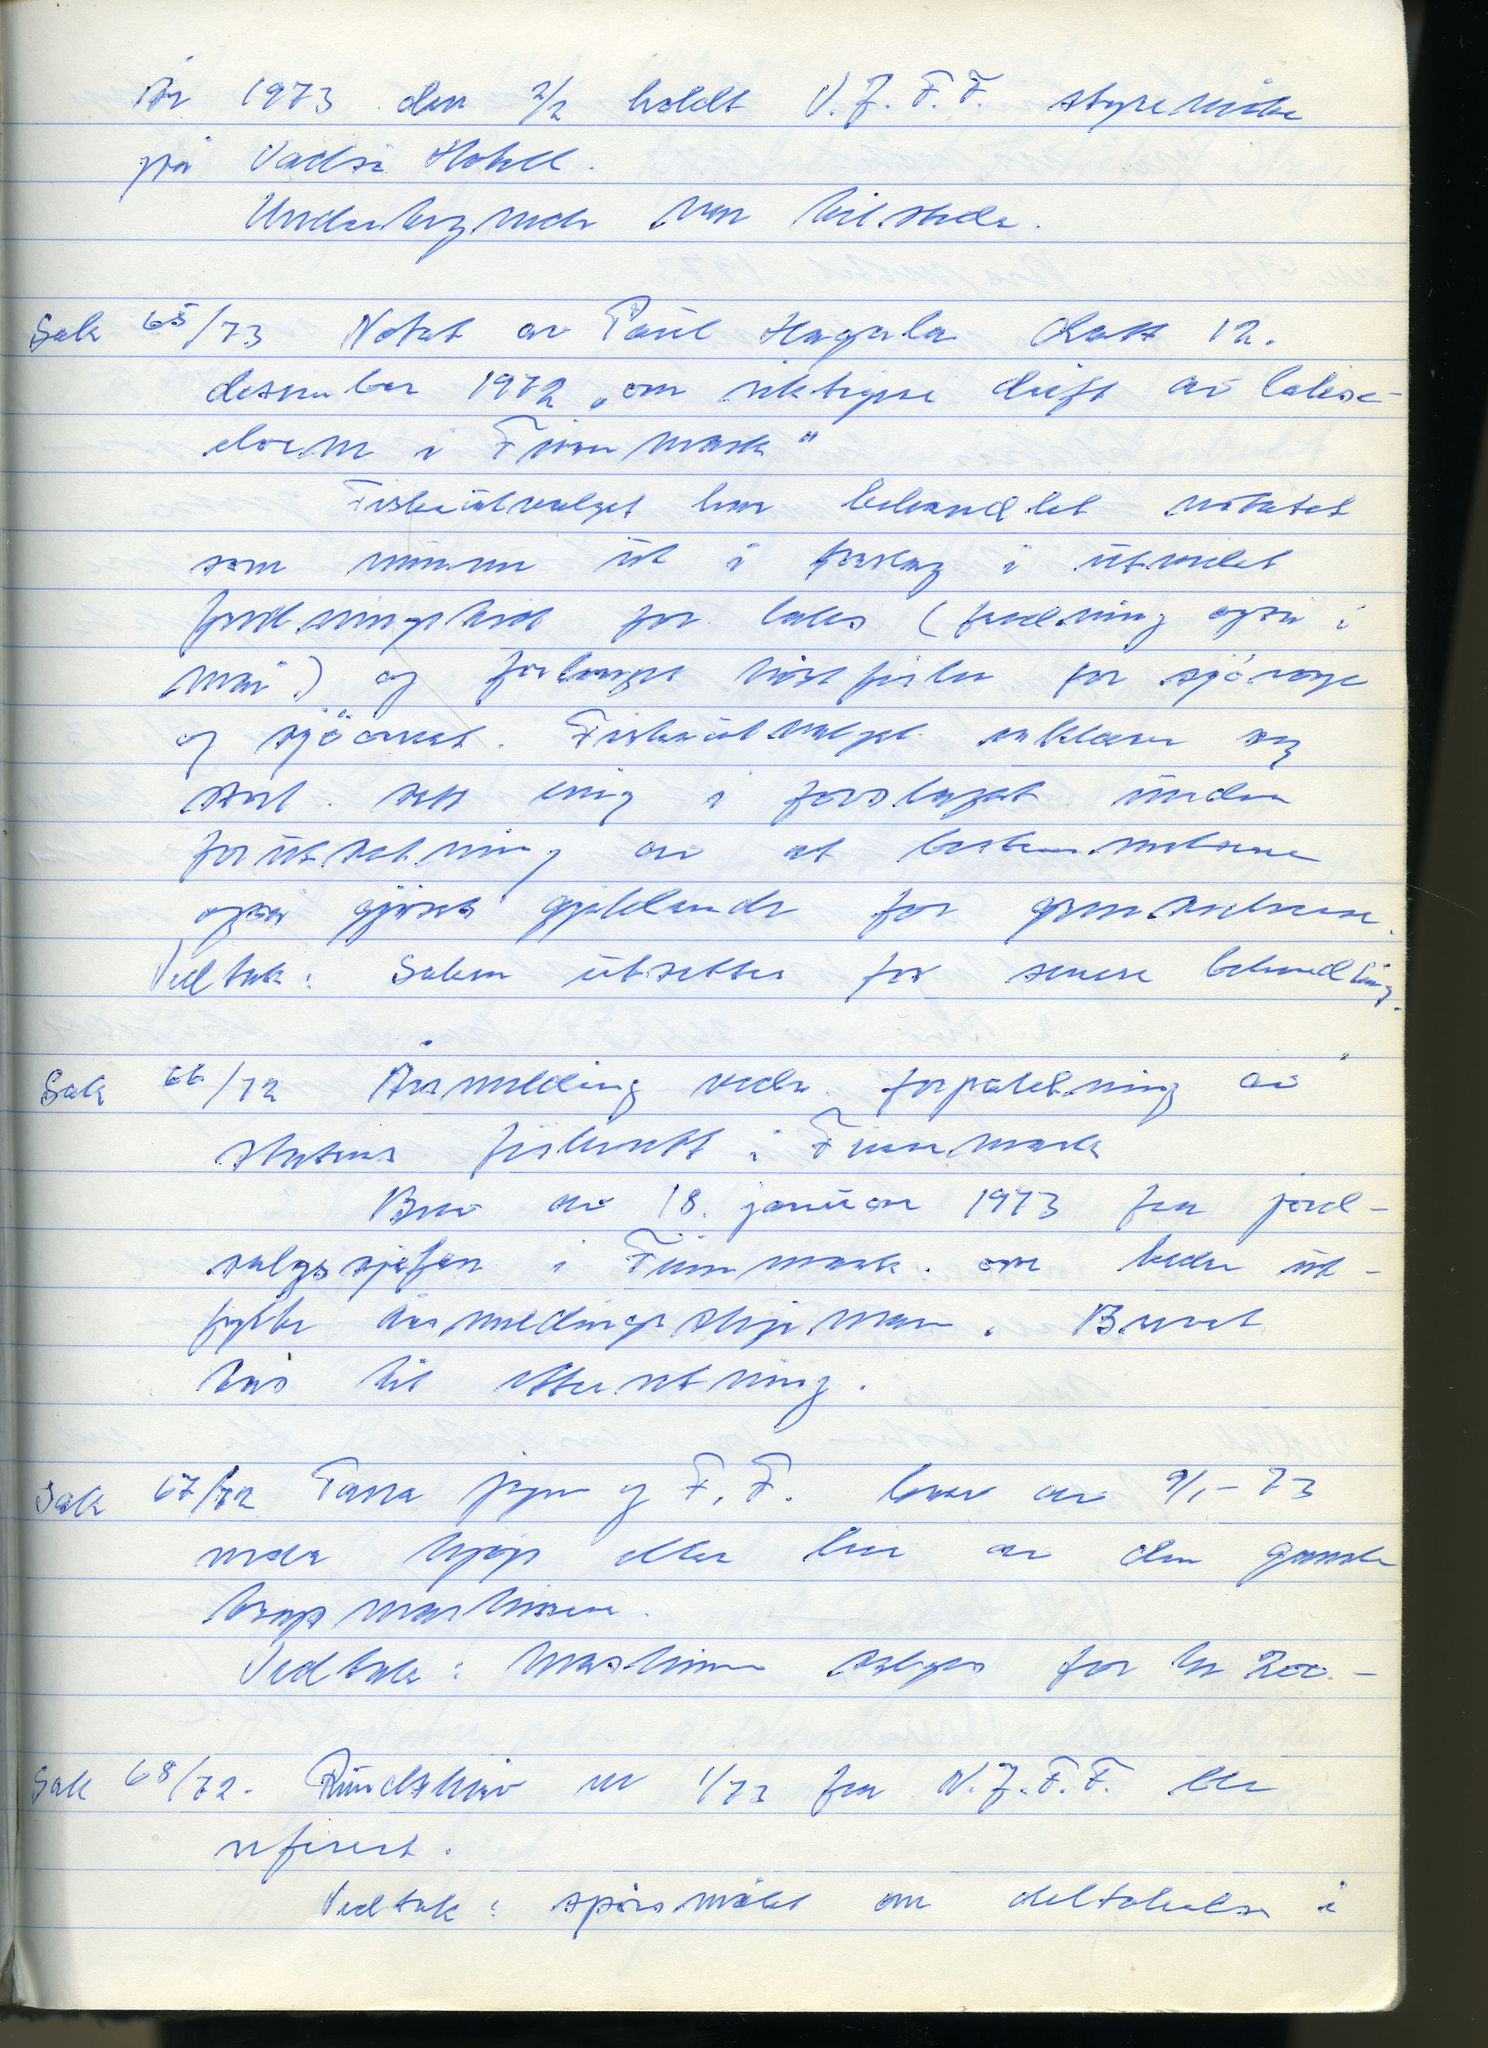 År 1973 den 2/2 holdt V.J.F.F. styremöte
på Vadsö Hotell.
Undertegnede var til stede.
Sak 65/73 Notat av Paul Hagala datt 12.
desember 1972 „om riktigere drift av lakse-
elvene i Finnmark"
Fiskeutvalget har behandlet notatet
som munner ut i forslag i utvidet
fredningstid for laks (fredning også i
mai) og forlenget höstfiske for sjöröye
og sjöörret. Fiskeutvalget erklærer seg
stort sett enig i forslaget under
forutsetning av at bestemmelsene
også gjöres gjeldende for grenseelvene.
Vedtak: Saken utsettes for senere behandling.
Sak 66/72 Årsmelding vedr. forpaktning av
statens fiskerett i Finnmark
Brev av 18. januar 1973 fra jord-
salgssjefen i Finnmark. om bedre ut-
fylte årsmeldingsskjemaer. Brevet
tas til etterretning.
Sak 67/72 Tana jeger og F.F. brev av 9/1-73
vedr kjöp eller leie av den gamle
kastmaskinen.
Vedtak: Maskinen selges for kr 200.-
Sak 68/72. Rundskriv nr 1/73 fra N.J.F.F. ble
referert.
Vedtak: spörsmålet om deltakelse i